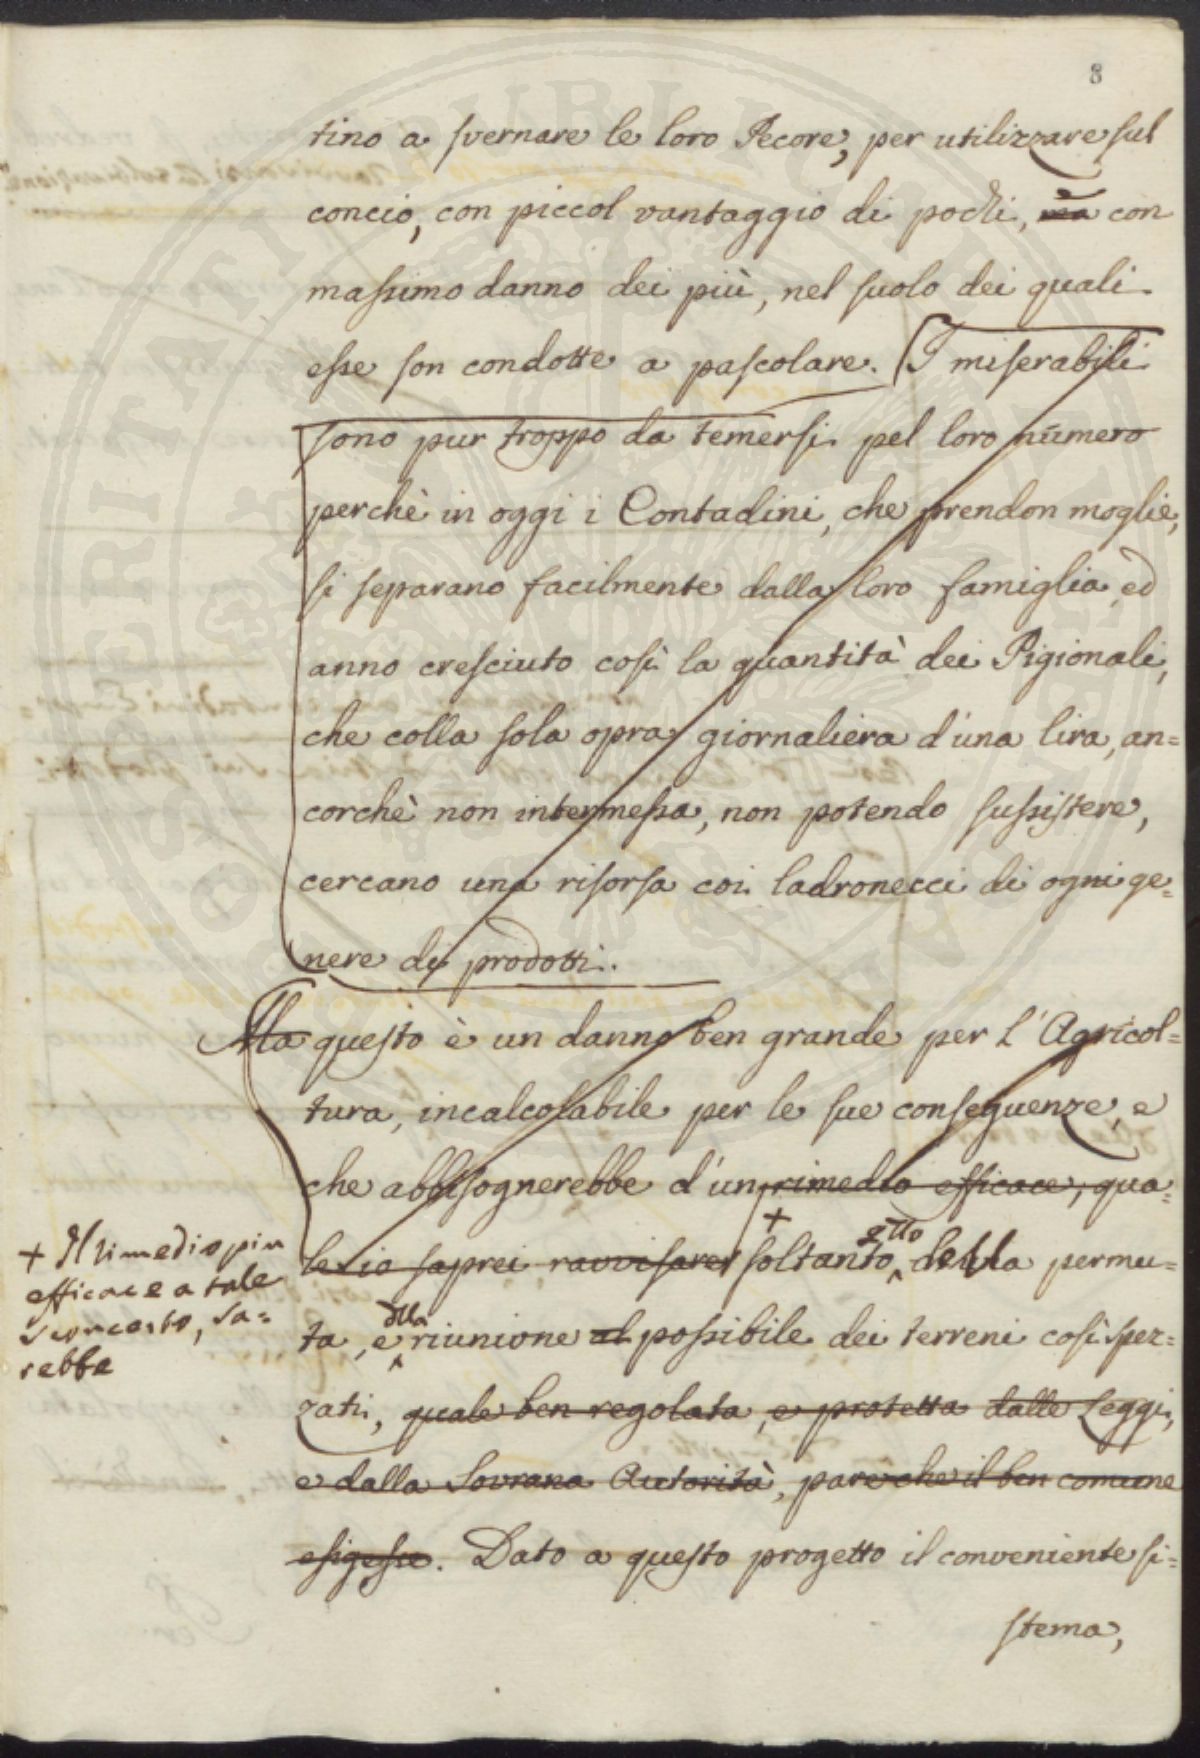 8
tino a svernare le loro Pecore, per utilizzare sul
concio, con piccol vantaggio di pochi, ma con
massimo danno dei più, nel suolo dei quali
esse son condotte a pascolare. I miserabili
sono pur troppo da temersi pel loro numero
perchè in oggi i Contadini, che prendon moglie,
si separano facilmente dalla loro famiglia, ed
anno cresciuto così la quantità dei Pigionali,
che colla sola opra giornaliera d'una lira, an=
corchè non intermessa, non potendo sussistere,
cercano una risorsa coi ladronecci di ogni ge=
nere di prodotti.
Ma questo è un danno ben grande per l'Agricol=
tura, incalcolabile per le sue conseguenze, e
che abbisognerebbe d'un rimedio efficace, qua=
le io saprei ravvisare + soltanto della permu=
ta, e dlla riunione al possibile dei terreni così spez=
zati, quale ben regolata, e protetta dalle Leggi,
e dalla Sovrana Autorità, pare che il ben comune
esigesse. Dato a questo progetto il conveniente si=
stema,
+ Il rimedio più
efficace a tale
sconcerto, sa=
rebbe
PROSPERITATI PUBLICAE AUGENDAE